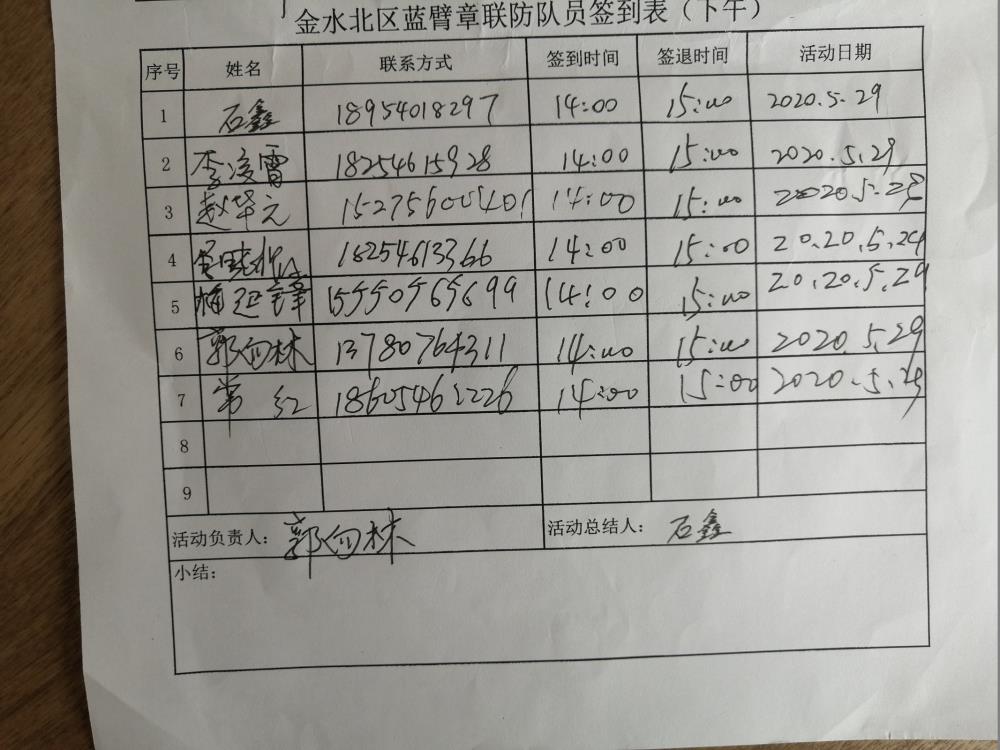 金水北区蓝臂章联防队员签到表（下午）
序号 姓名 联系方式 签到时间 签退时间 活动日期
1 石鑫 18954018297 14:00 15:00 2020.5.29
2 李凌霄 18254615928 14:00 15:00 2020.5.29
3 赵华元 14:00 15:00 2020.5.29
4 18254613366 14:00 15:00 20.20.5.29
5 14:00 15:00 20.20.5.29
6 郭向林 13780764311 14:00 15:00 2020.5.29
7 常红 18605461226 14:00 15:00 2020.5.29
8
9
活动负责人：郭向林 活动总结人：石鑫
小结：